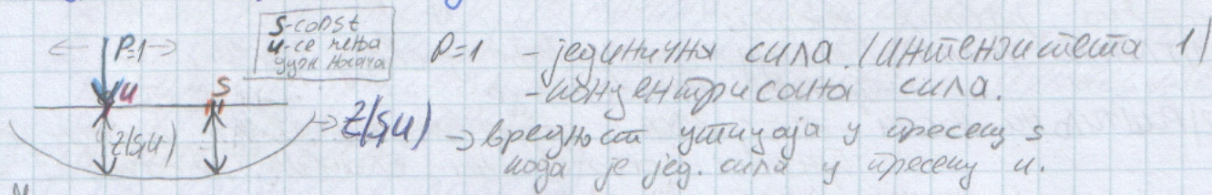 P=1
s-const
u-се мења
дуж носача
u
s
Z(s,u)
Z(s,u)
P=1 - јединична сила. /интензитета 1/
- концентрисана сила.
→ вредност утицаја у пресеку s
када је јед. сила у пресеку u.